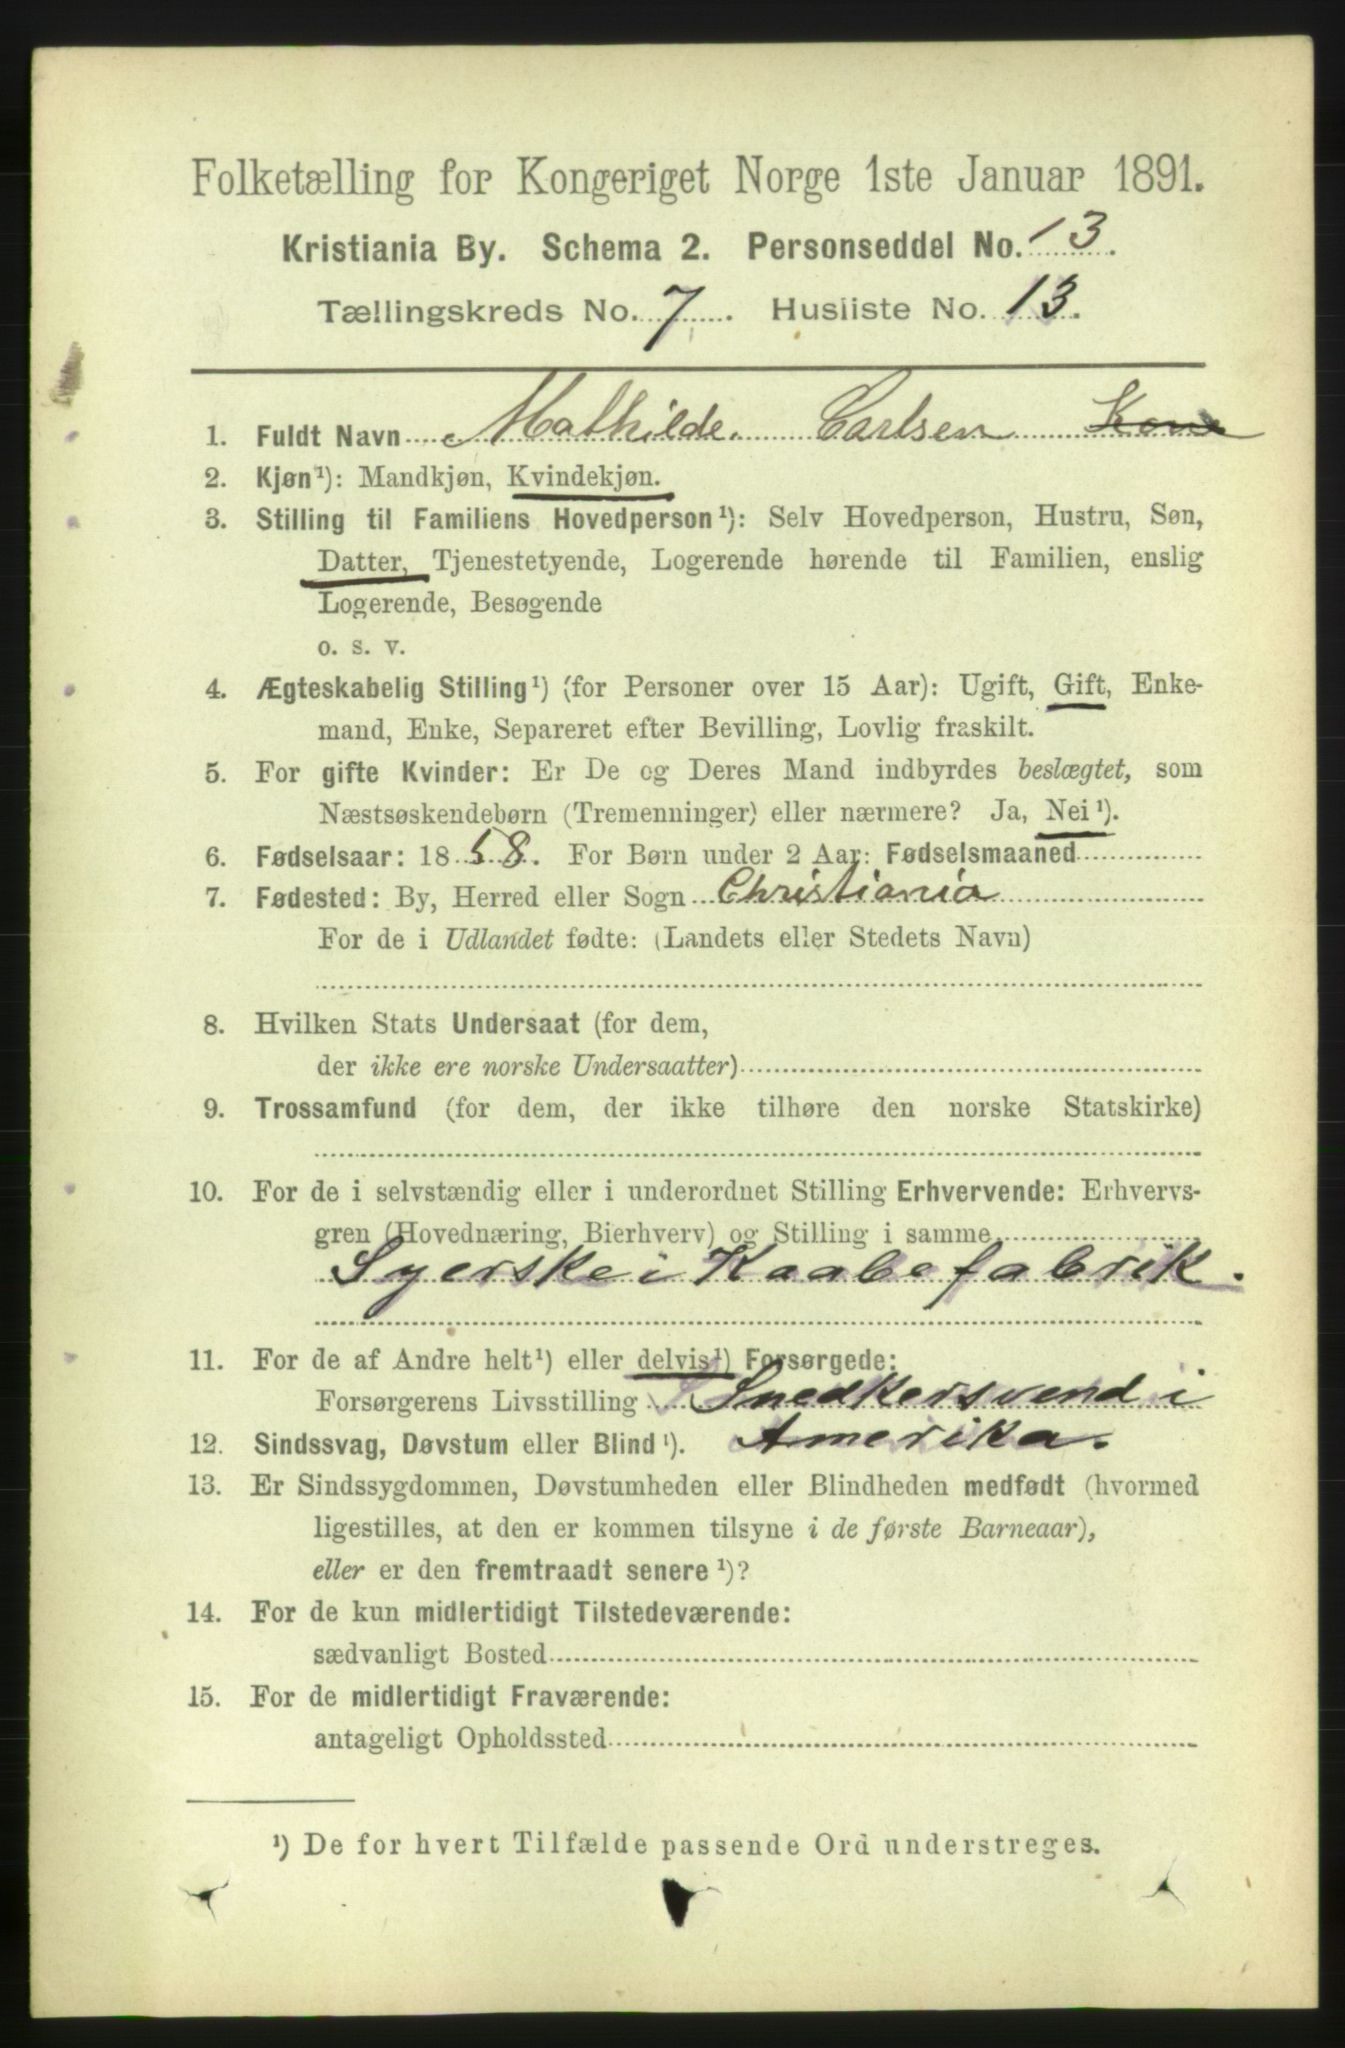 Folketælling for Kongeriget Norge 1ste Januar 1891.
Kristiania By. Schema 2. Personseddel No. 13.
Tællingskreds No. 7. Husliste No. 13.
1. Fuldt Navn Mathilde Carlsen Kone
2. Kjøn¹): Mandkjøn, Kvindekjøn.
3. Stilling til Familiens Hovedperson¹): Selv Hovedperson, Hustru, Søn,
Datter, Tjenestetyende, Logerende hørende til Familien, enslig
Logerende, Besøgende
o. s. v.
4. Ægteskabelig Stilling¹) (for Personer over 15 Aar): Ugift, Gift, Enke-
mand, Enke, Separeret efter Bevilling, Lovlig fraskilt.
5. For gifte Kvinder: Er De og Deres Mand indbyrdes beslægtet, som
Næstsøskendebørn (Tremenninger) eller nærmere? Ja, Nei¹).
6. Fødselsaar: 1858. For Børn under 2 Aar: Fødselsmaaned
7. Fødested: By, Herred eller Sogn Christiania
For de i Udlandet fødte: (Landets eller Stedets Navn)
8. Hvilken Stats Undersaat (for dem,
der ikke ere norske Undersaatter)
9. Trossamfund (for dem, der ikke tilhøre den norske Statskirke)
10. For de i selvstændig eller i underordnet Stilling Erhvervende: Erhvervs-
gren (Hovednæring, Bierhverv) og Stilling i samme
Syerske i Kaabefabrik.
11. For de af Andre helt¹) eller delvis¹) Forsørgede:
Forsørgerens Livsstilling Snedkersvend i
12. Sindssvag, Døvstum eller Blind¹). Amerika.
13. Er Sindssygdommen, Døvstumheden eller Blindheden medfødt (hvormed
ligestilles, at den er kommen tilsyne i de første Barneaar),
eller er den fremtraadt senere¹)?
14. For de kun midlertidigt Tilstedeværende:
sædvanligt Bosted
15. For de midlertidigt Fraværende:
antageligt Opholdssted
¹) De for hvert Tilfælde passende Ord understreges.